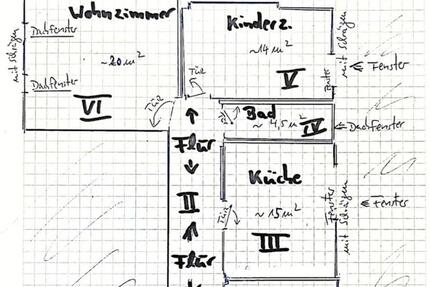 Wohnzimmer
Dachfenster
mit Schrägen
~20 m²
Dachfenster
VI
Tür
Kinderz.
~14 m²
Tür
V
mit Schrägen
Fenster
Bad
~4,5 m²
IV
Dachfenster
Flur
II
Flur
Küche
Tür
~15 m²
III
Fenster
mit Schrägen
Fenster